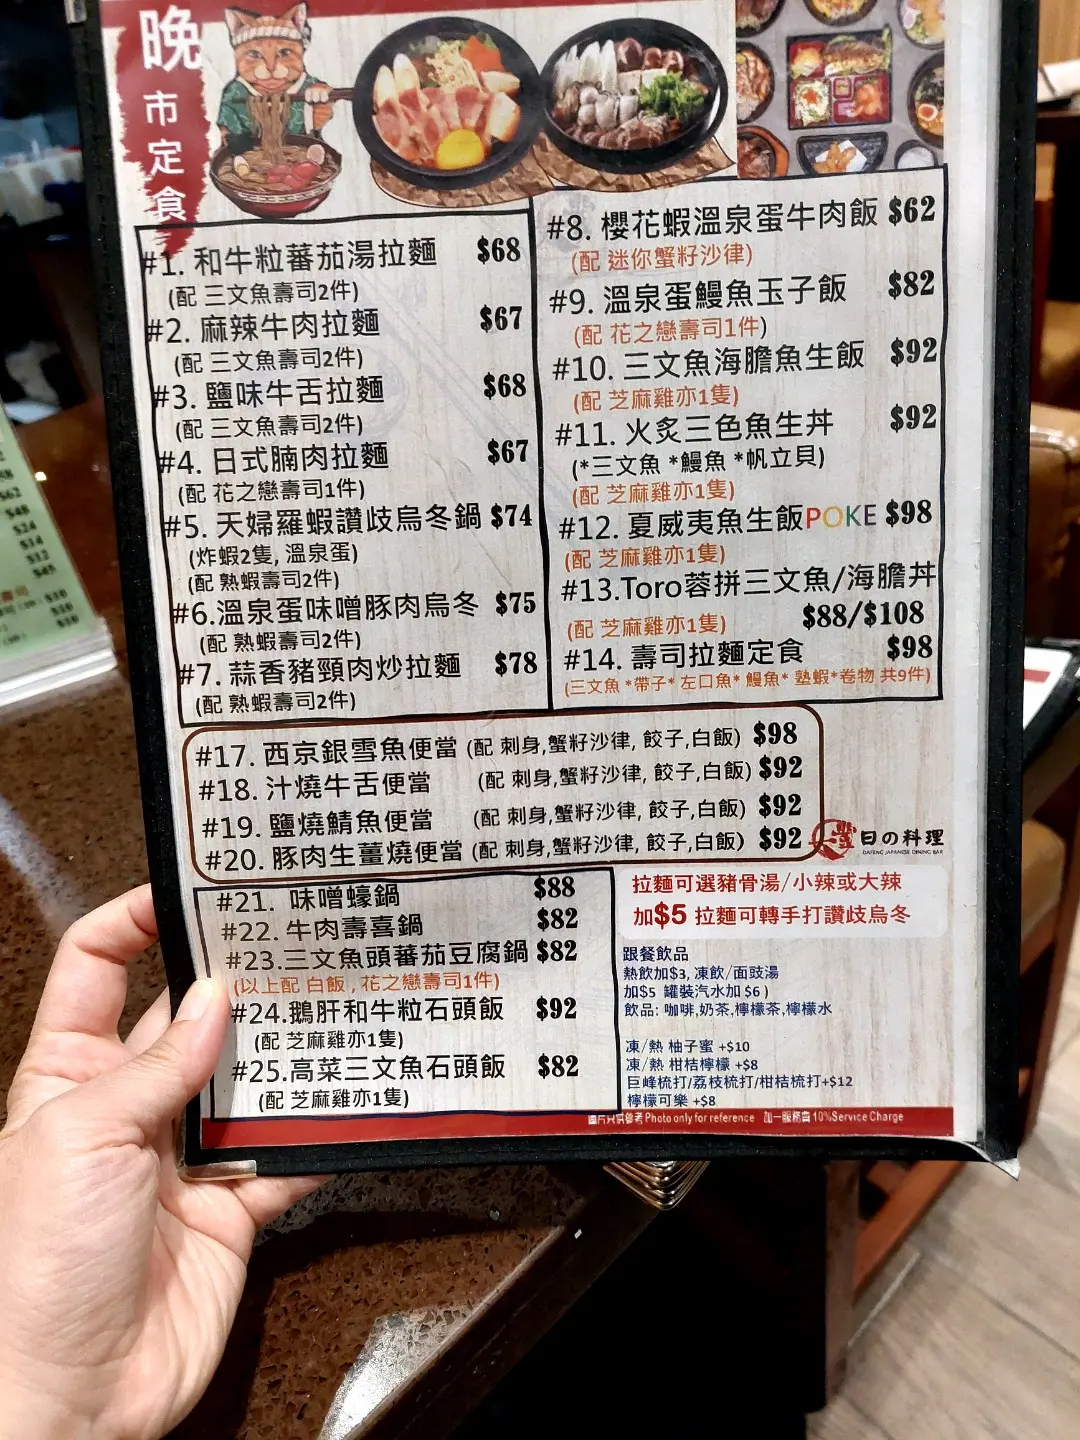 晚市定食
#1. 和牛粒蕃茄湯拉麵 $68
(配 三文魚壽司2件)
#2. 麻辣牛肉拉麵 $67
(配 三文魚壽司2件)
#3. 鹽味牛舌拉麵 $68
(配 三文魚壽司2件)
#4. 日式腩肉拉麵 $67
(配 花之戀壽司1件)
#5. 天婦羅蝦讚歧烏冬鍋 $74
(炸蝦2隻, 溫泉蛋)
(配 熟蝦壽司2件)
#6.溫泉蛋味噌豚肉烏冬 $75
(配 熟蝦壽司2件)
#7. 蒜香豬頸肉炒拉麵 $78
(配 熟蝦壽司2件)
#8. 櫻花蝦溫泉蛋牛肉飯 $62
(配 迷你蟹籽沙律)
#9. 溫泉蛋鰻魚玉子飯 $82
(配 花之戀壽司1件)
#10. 三文魚海膽魚生飯 $92
(配 芝麻雞亦1隻)
#11. 火炙三色魚生丼 $92
(*三文魚 *鰻魚 *帆立貝)
(配 芝麻雞亦1隻)
#12. 夏威夷魚生飯POKE $98
(配 芝麻雞亦1隻)
#13.Toro蓉拼三文魚/海膽丼
(配 芝麻雞亦1隻) $88/$108
#14. 壽司拉麵定食 $98
(三文魚 *帶子* 左口魚* 鰻魚* 熟蝦*卷物 共9件)
#17. 西京銀雪魚便當 (配 刺身,蟹籽沙律, 餃子,白飯) $98
#18. 汁燒牛舌便當 (配 刺身,蟹籽沙律, 餃子,白飯) $92
#19. 鹽燒鯖魚便當 (配 刺身,蟹籽沙律, 餃子,白飯) $92
#20. 豚肉生薑燒便當 (配 刺身,蟹籽沙律, 餃子,白飯) $92
日の料理
DAFENG JAPANESE DINING BAR
#21. 味噌蠔鍋 $88
#22. 牛肉壽喜鍋 $82
#23.三文魚頭蕃茄豆腐鍋 $82
(以上配 白飯 , 花之戀壽司1件)
#24.鵝肝和牛粒石頭飯 $92
(配 芝麻雞亦1隻)
#25.高菜三文魚石頭飯 $82
(配 芝麻雞亦1隻)
拉麵可選豬骨湯/小辣或大辣
加$5 拉麵可轉手打讚歧烏冬
跟餐飲品
熱飲加$3, 凍飲/面豉湯
加$5 罐裝汽水加 $6 )
飲品: 咖啡,奶茶,檸檬茶,檸檬水
凍/熱 柚子蜜 +$10
凍/熱 柑桔檸檬 +$8
巨峰梳打/荔枝梳打/柑桔梳打+$12
檸檬可樂 +$8
圖片只供參考 Photo only for reference 加一服務費 10%Service Charge